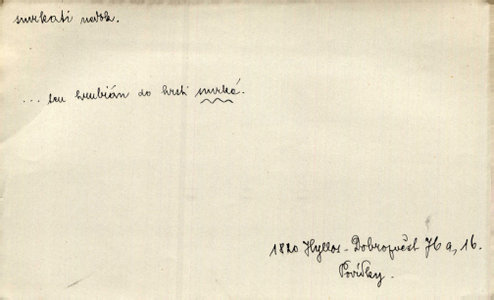 smrkati nedok.
... ten hrubián do hrsti smrká.
1820 Hyllos - Dobrozvěst Ha, 16.
Povídky.